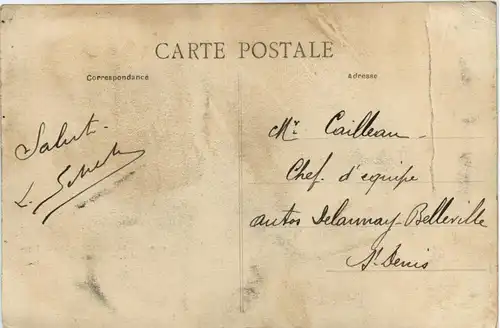 CARTE POSTALE
Correspondance
Adresse
Salut.
L.
Mr. Cailleau
Chef. d'equipe
autos Delaunay-Belleville
St Denis